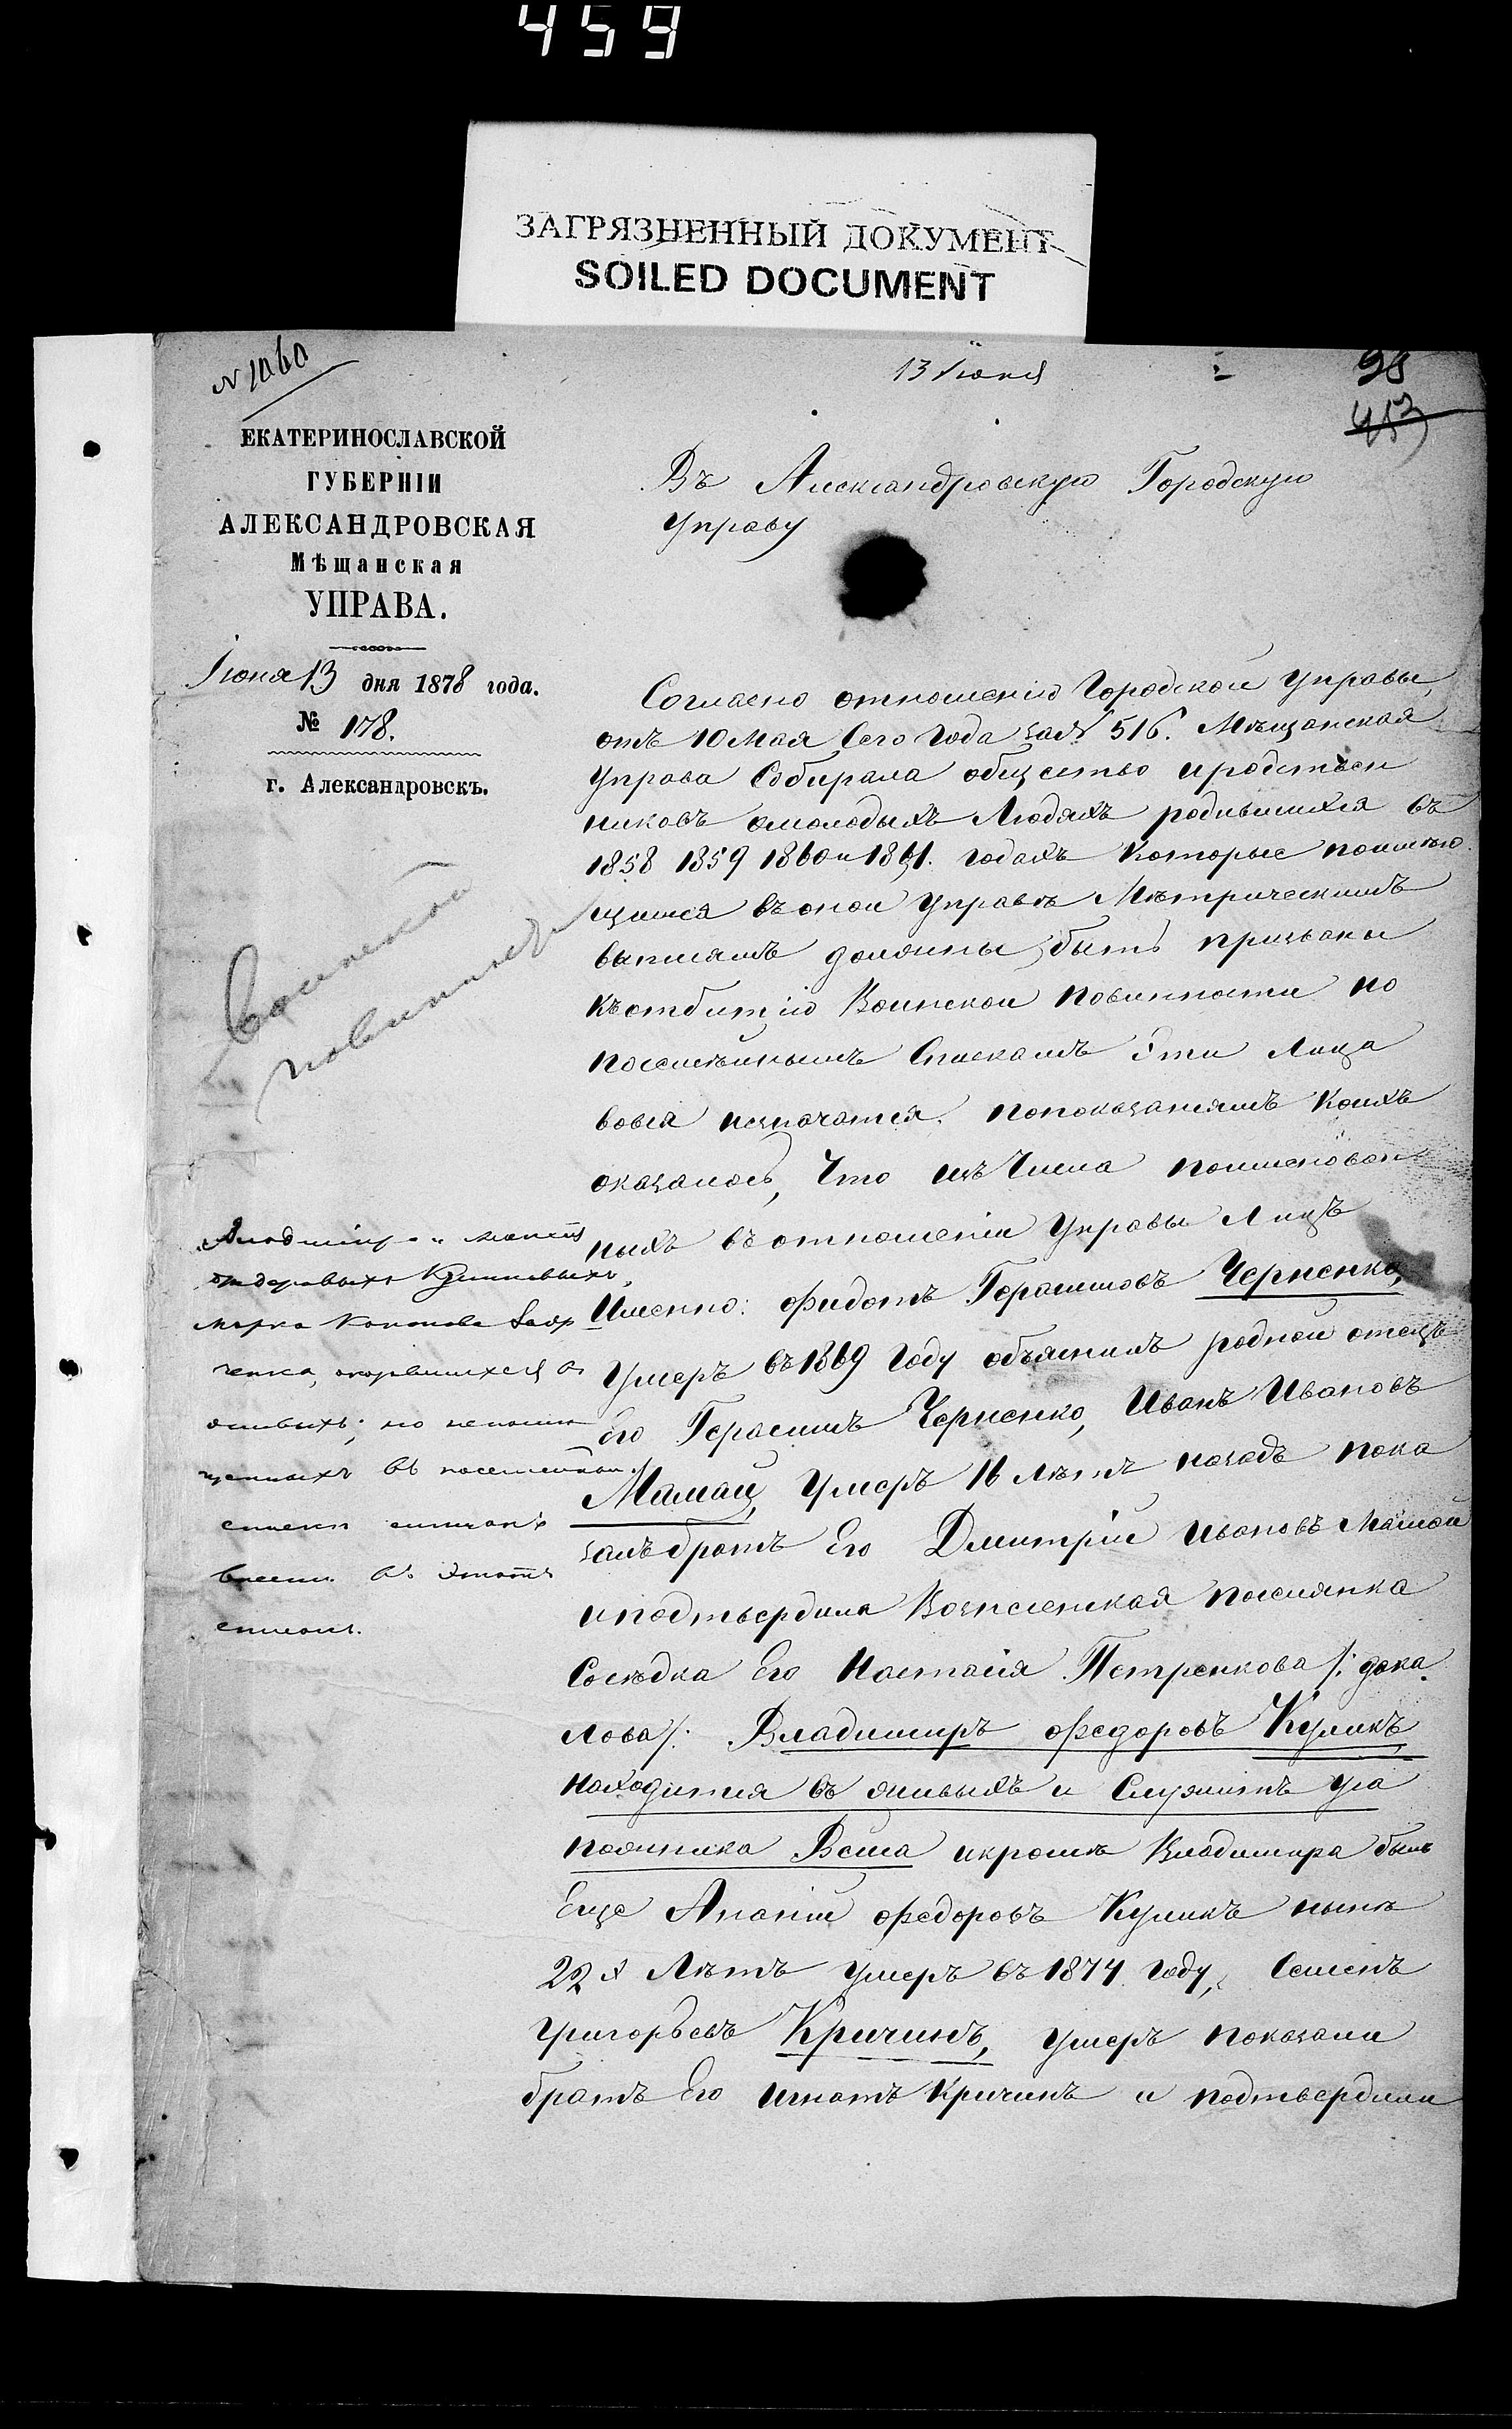 459
ЗАГРЯЗНЕННЫЙ ДОКУМЕНТ
SOILED DOCUMENT
N 1060
13 Іюня
98
453
ЕКАТЕРИНОСЛАВСКОЙ
ГУБЕРНІИ
АЛЕКСАНДРОВСКАЯ
Мѣщанская
УПРАВА.
Іюня 13 дня 1878 года.
№ 178.
г. Александровскъ.
Въ Александровскую Городскую
Управу
Воинской
повинности
Согласно отношенію Городской Управы,
отъ 10 Мая Сего Года за N 516. Мѣщанская
Управа Собирала общество и родствен
никовъ о молодыхъ Людяхъ родившихся въ
1858 1859 1860 и 1861. годахъ Которые по имѣю
щимся въ оной Управѣ Мѣтрическимъ
выписямъ должны быть призваны
къ отбитію Воинской повинности но
посемѣйнымъ Спискамъ Эти Лица
вовся незначатся. по показаніямъ Коихъ
оказалось, Что изъ Числа поименован
ныхъ въ отношеніи Управы Лицъ
Именно: Федотъ Герасимовъ Черненко,
Умеръ въ 1869 Году объяснилъ родной отецъ
Его Герасимъ Черненко, Иванъ Ивановъ
Мамай, Умеръ 16 Лѣтъ назадъ пока
залъ братъ Его Дмитрій Ивановъ Мамай
и подтвердила Вознесенская поселянка
Сосѣдка Его Настасія Петренкова /: дока
лова /: Владимиръ Федоровъ Куликъ,
находится въ живыхъ и Служитъ у са
пожника Вейса и кромѣ Владимира былъ
Еще Ананій Федоровъ Куликъ нынѣ
22 х Лѣтъ Умеръ въ 1874 Году, Семенъ
Григорьевъ Кричинъ, Умеръ показали
братъ Его Игнатъ Кричинъ и подтвердили
Федоровыхъ Куликовыхъ,
Марка Кононова
живыхъ, но не помѣ
щенныхъ въ посемейный
списки
внесть въ этотъ
списокъ.